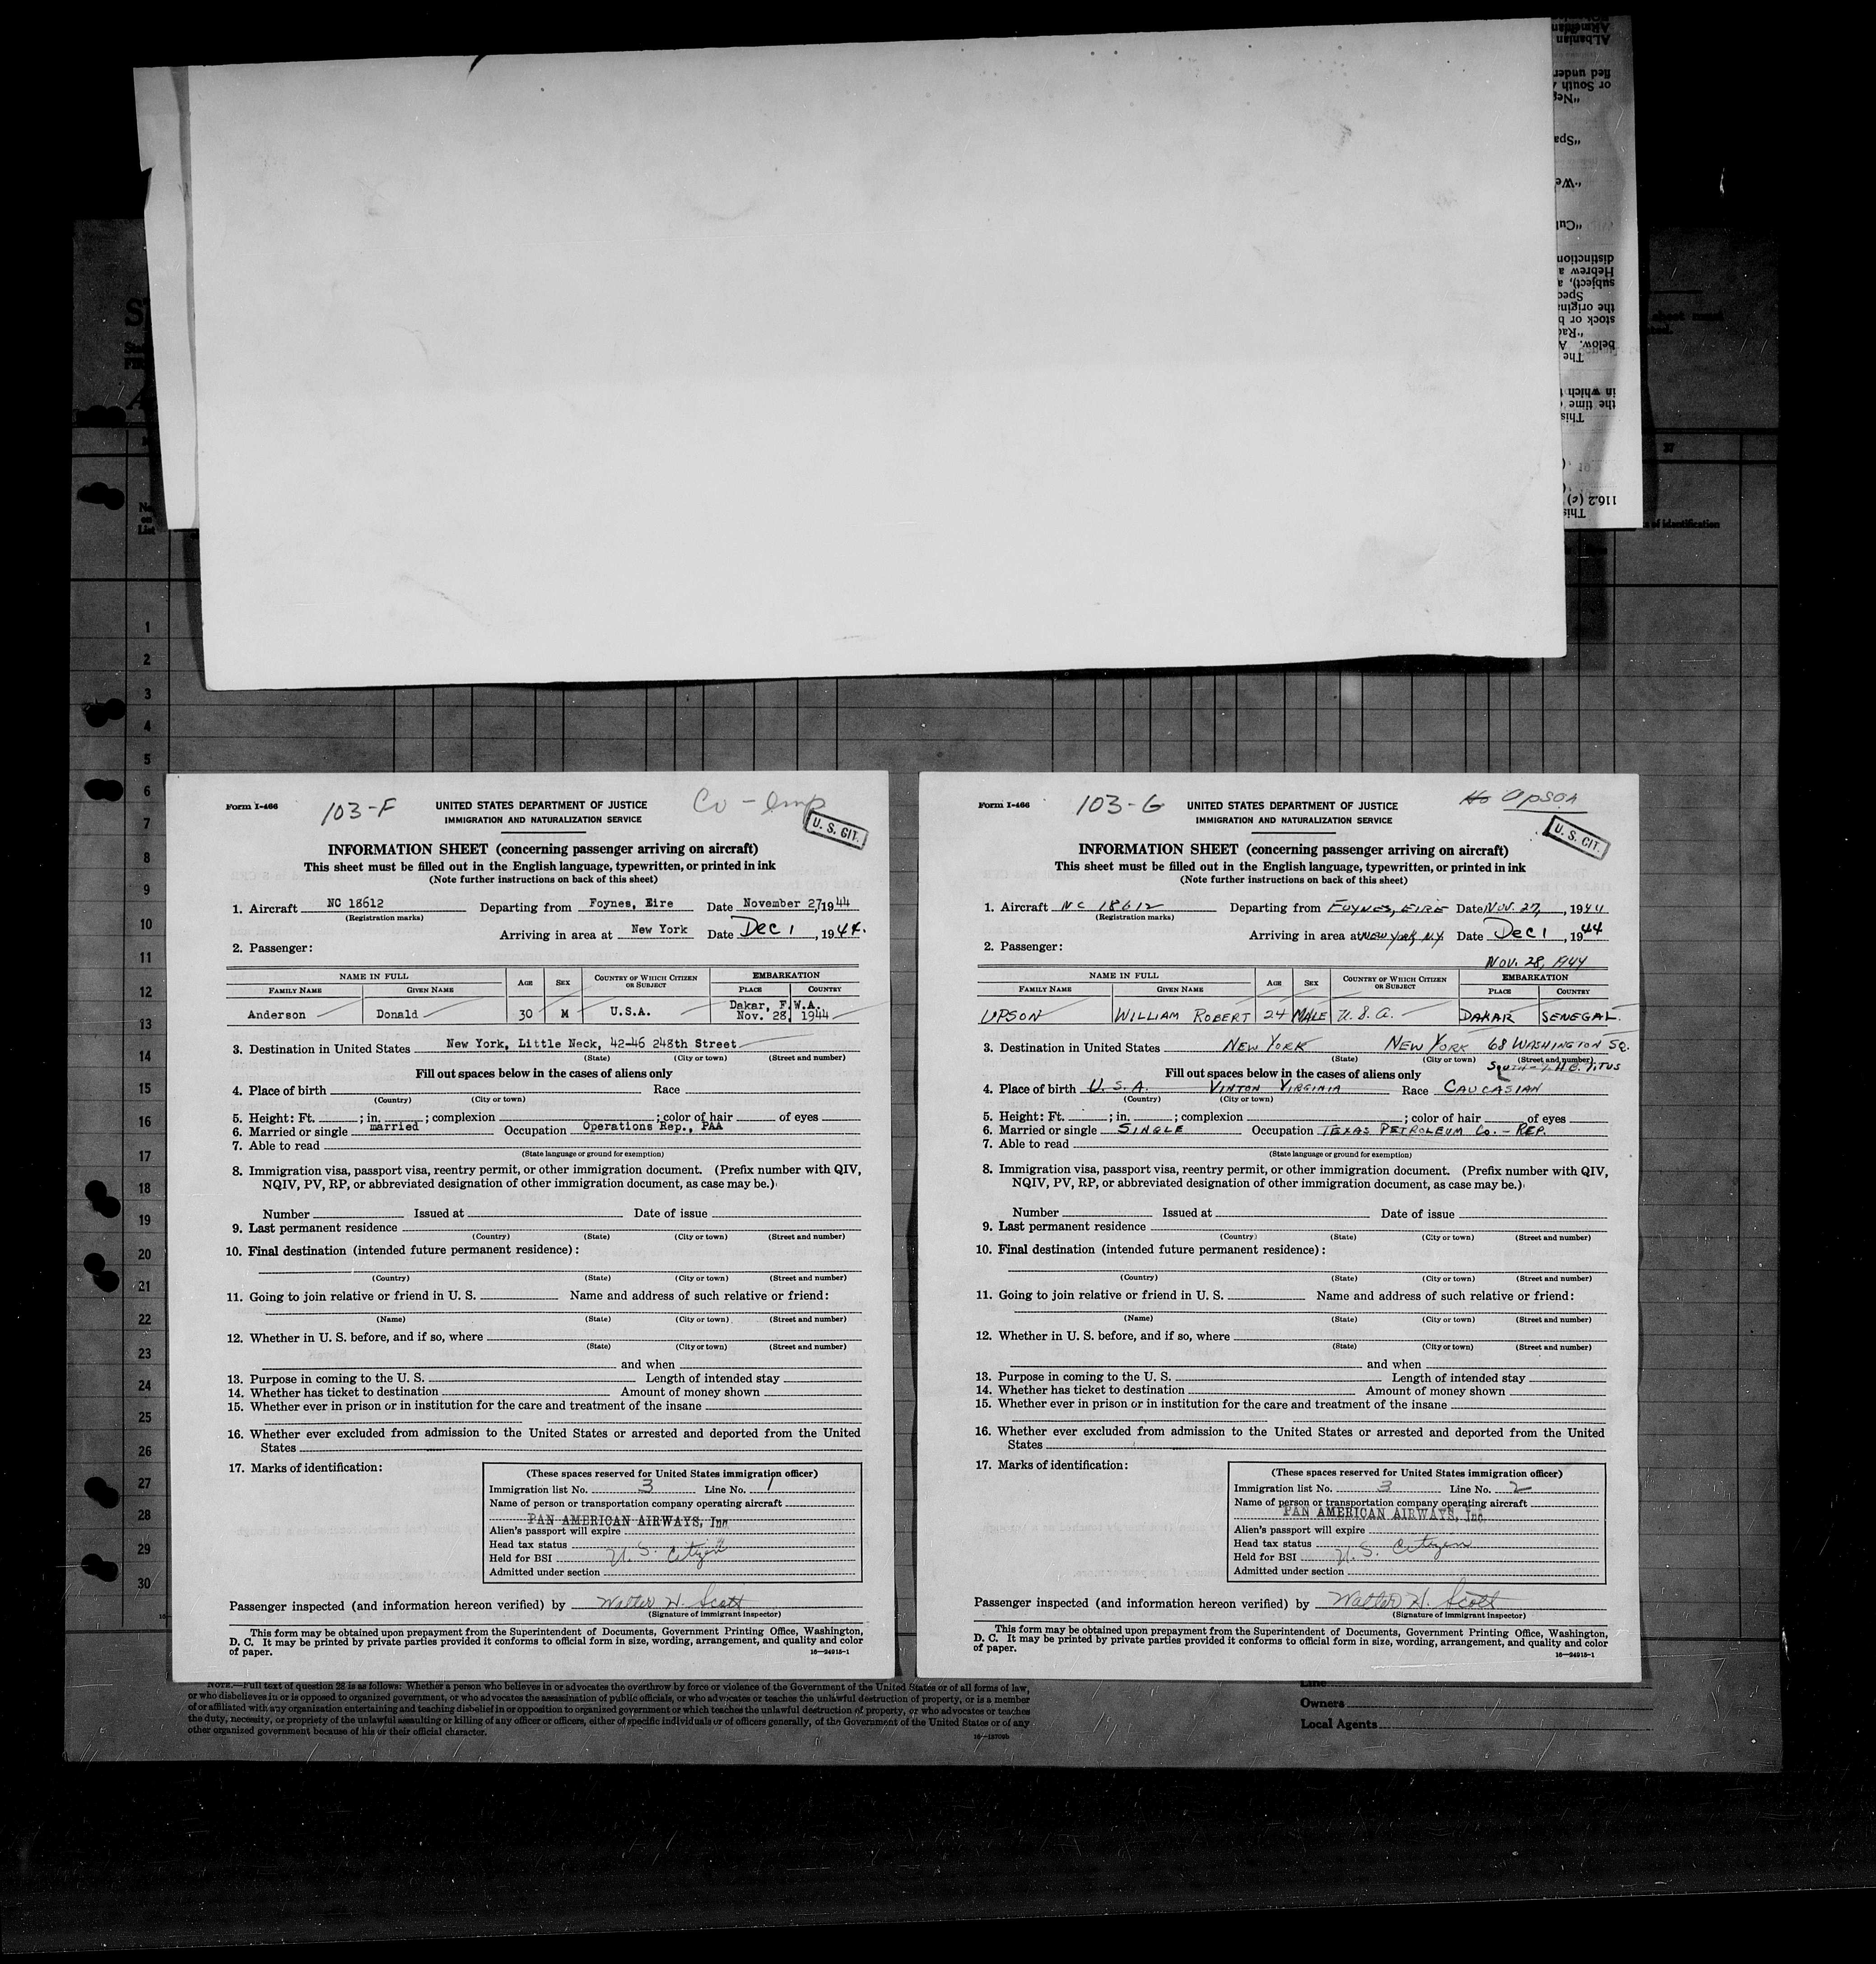 Form I-466
103-F
UNITED STATES DEPARTMENT OF JUSTICE
IMMIGRATION AND NATURALIZATION SERVICE
Co - Emp
U. S. CIT.
INFORMATION SHEET (concerning passenger arriving on aircraft)
This sheet must be filled out in the English language, typewritten, or printed in ink
(Note further instructions on back of this sheet)
1. Aircraft NC 18612 Departing from Foynes, Eire Date November 27, 1944
(Registration marks)
Arriving in area at New York Date Dec 1, 1944.
2. Passenger:
NAME IN FULL AGE SEX COUNTRY OF WHICH CITIZEN OR SUBJECT EMBARKATION
FAMILY NAME GIVEN NAME PLACE COUNTRY
Anderson Donald 30 M U.S.A. Dakar, F.W.A.
Nov. 28, 1944
3. Destination in United States New York, Little Neck, 42-46 248th Street
(State) (City or town) (Street and number)
Fill out spaces below in the cases of aliens only
4. Place of birth Race
(Country) (City or town)
5. Height: Ft. ; in. ; complexion ; color of hair of eyes
6. Married or single married Occupation Operations Rep., PAA
7. Able to read
(State language or ground for exemption)
8. Immigration visa, passport visa, reentry permit, or other immigration document. (Prefix number with QIV,
NQIV, PV, RP, or abbreviated designation of other immigration document, as case may be.)
Number Issued at Date of issue
9. Last permanent residence
(Country) (State) (City or town) (Street and number)
10. Final destination (intended future permanent residence):
(Country) (State) (City or town) (Street and number)
11. Going to join relative or friend in U. S. Name and address of such relative or friend:
(Name) (State) (City or town) (Street and number)
12. Whether in U. S. before, and if so, where
(State) (City or town) (Street and number)
and when
13. Purpose in coming to the U. S. Length of intended stay
14. Whether has ticket to destination Amount of money shown
15. Whether ever in prison or in institution for the care and treatment of the insane
16. Whether ever excluded from admission to the United States or arrested and deported from the United
States
17. Marks of identification:
(These spaces reserved for United States immigration officer)
Immigration list No. 3 Line No. 1
Name of person or transportation company operating aircraft
PAN AMERICAN AIRWAYS, Inc.
Alien's passport will expire
Head tax status
Held for BSI U. S. Citizen
Admitted under section
Passenger inspected (and information hereon verified) by Walter H. Scott
(Signature of immigrant inspector)
This form may be obtained upon prepayment from the Superintendent of Documents, Government Printing Office, Washington,
D. C. It may be printed by private parties provided it conforms to official form in size, wording, arrangement, and quality and color
of paper.
16—24915-1
Form I-466
103-G
UNITED STATES DEPARTMENT OF JUSTICE
IMMIGRATION AND NATURALIZATION SERVICE
Upson
U. S. CIT.
INFORMATION SHEET (concerning passenger arriving on aircraft)
This sheet must be filled out in the English language, typewritten, or printed in ink
(Note further instructions on back of this sheet)
1. Aircraft NC 18612 Departing from FOYNES, EIRE Date NOV. 27, 1944
(Registration marks)
Arriving in area at NEW YORK N.Y. Date Dec 1, 1944
2. Passenger:
NOV. 28, 1944
NAME IN FULL AGE SEX COUNTRY OF WHICH CITIZEN OR SUBJECT EMBARKATION
FAMILY NAME GIVEN NAME PLACE COUNTRY
UPSON WILLIAM ROBERT 24 MALE U. S. A. DAKAR SENEGAL.
3. Destination in United States NEW YORK NEW YORK 68 WASHINGTON SQ.
(State) (City or town) (Street and number)
SOUTH H.C. TITUS
Fill out spaces below in the cases of aliens only
4. Place of birth U. S. A. VINTON VIRGINIA Race CAUCASIAN
(Country) (City or town)
5. Height: Ft. ; in. ; complexion ; color of hair of eyes
6. Married or single SINGLE Occupation TEXAS PETROLEUM CO. - REP.
7. Able to read
(State language or ground for exemption)
8. Immigration visa, passport visa, reentry permit, or other immigration document. (Prefix number with QIV,
NQIV, PV, RP, or abbreviated designation of other immigration document, as case may be.)
Number Issued at Date of issue
9. Last permanent residence
(Country) (State) (City or town) (Street and number)
10. Final destination (intended future permanent residence):
(Country) (State) (City or town) (Street and number)
11. Going to join relative or friend in U. S. Name and address of such relative or friend:
(Name) (State) (City or town) (Street and number)
12. Whether in U. S. before, and if so, where
(State) (City or town) (Street and number)
and when
13. Purpose in coming to the U. S. Length of intended stay
14. Whether has ticket to destination Amount of money shown
15. Whether ever in prison or in institution for the care and treatment of the insane
16. Whether ever excluded from admission to the United States or arrested and deported from the United
States
17. Marks of identification:
(These spaces reserved for United States immigration officer)
Immigration list No. 3 Line No. 2
Name of person or transportation company operating aircraft
PAN AMERICAN AIRWAYS, Inc.
Alien's passport will expire
Head tax status
Held for BSI U. S. Citizen
Admitted under section
Passenger inspected (and information hereon verified) by Walter H. Scott
(Signature of immigrant inspector)
This form may be obtained upon prepayment from the Superintendent of Documents, Government Printing Office, Washington,
D. C. It may be printed by private parties provided it conforms to official form in size, wording, arrangement, and quality and color
of paper.
16—24915-1
1
2
3
4
5
6
7
8
9
10
11
12
13
14
15
16
17
18
19
20
21
22
23
24
25
26
27
28
29
30
NOTE.—Full text of question 28 is as follows: Whether a person who believes in or advocates the overthrow by force or violence of the Government of the United States or of all forms of law,
or who disbelieves in or is opposed to organized government, or who advocates the assassination of public officials, or who advocates or teaches the unlawful destruction of property, or is a member
of or affiliated with any organization entertaining and teaching disbelief in or opposition to organized government or which teaches the unlawful destruction of property, or who advocates or teaches
the duty, necessity, or propriety of the unlawful assaulting or killing of any officer or officers, either of specific individuals or of officers generally, of the Government of the United States or of any
other organized government because of his or their official character.
Line
Owners
Local Agents
of identification
ALbanian
fied under
or South
"Neg
"Spa
"We
"Cul
distinction
Hebrew a
subject), a
Spec
the origina
stock or b
"Rac
below. A
The
in which
the time
This
116.2 (c)
This